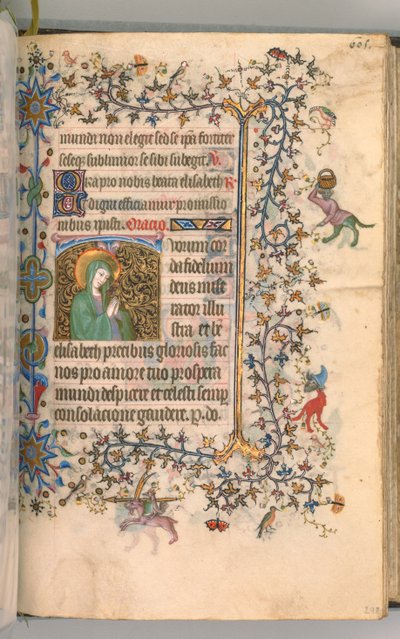 601.
mundi non elegit sed se ipā fortiter
seseqȝ sublimior se sibi subegit. V.
Ora pro nobis beata elisabeth R
Et digni efficiamur promissio
nibus xpisti. Oracio.
Tuorum cor
da fidelium
deus mise
rator illu
stra et be
elisabeth precibus gloriosis fac
nos pro amore tuo prospera
mundi despicere et celesti semp
consolacione gaudere. P. do.
298